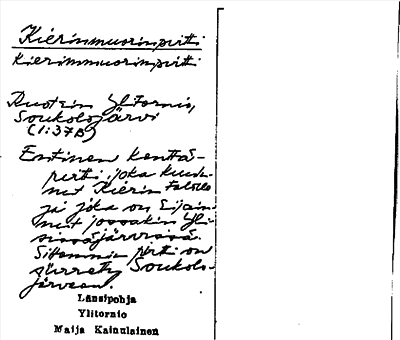 Kierinmuorinpirtti
Kierinmuorinpirtti
Ruotsin Ylitornio,
Soukolojärvi
(1:37B)
Entinen kenttä-
pirtti, joka kuulu-
nut Kierin talolle
ja joka on sijain-
nut jossakin Yli-
sissäjärvissä.
Sittemmin pirtti on
siirretty Soukolo-
järveen.
Länsipohja
Ylitornio
Maija Kainulainen